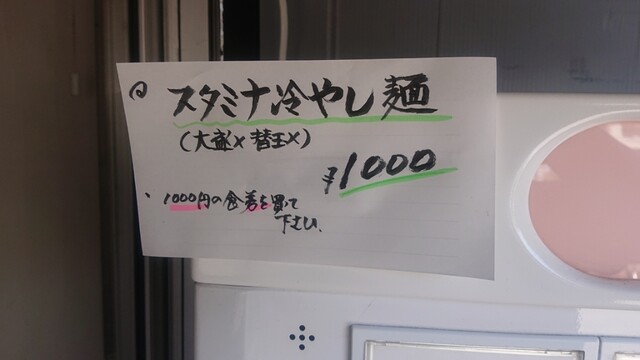 スタミナ冷やし麺
(大盛× 替玉×)
¥1000
、1000円の食券を買って
下さい。